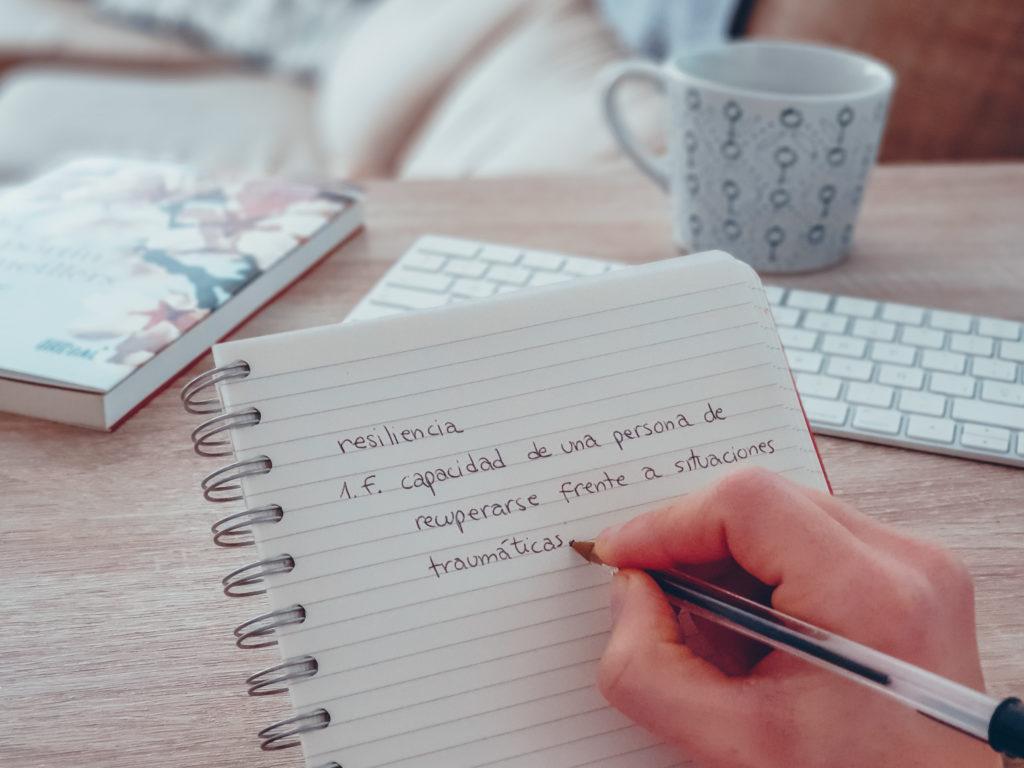 resiliencia
1. f. capacidad de una persona de
recuperarse frente a situaciones
traumáticas.